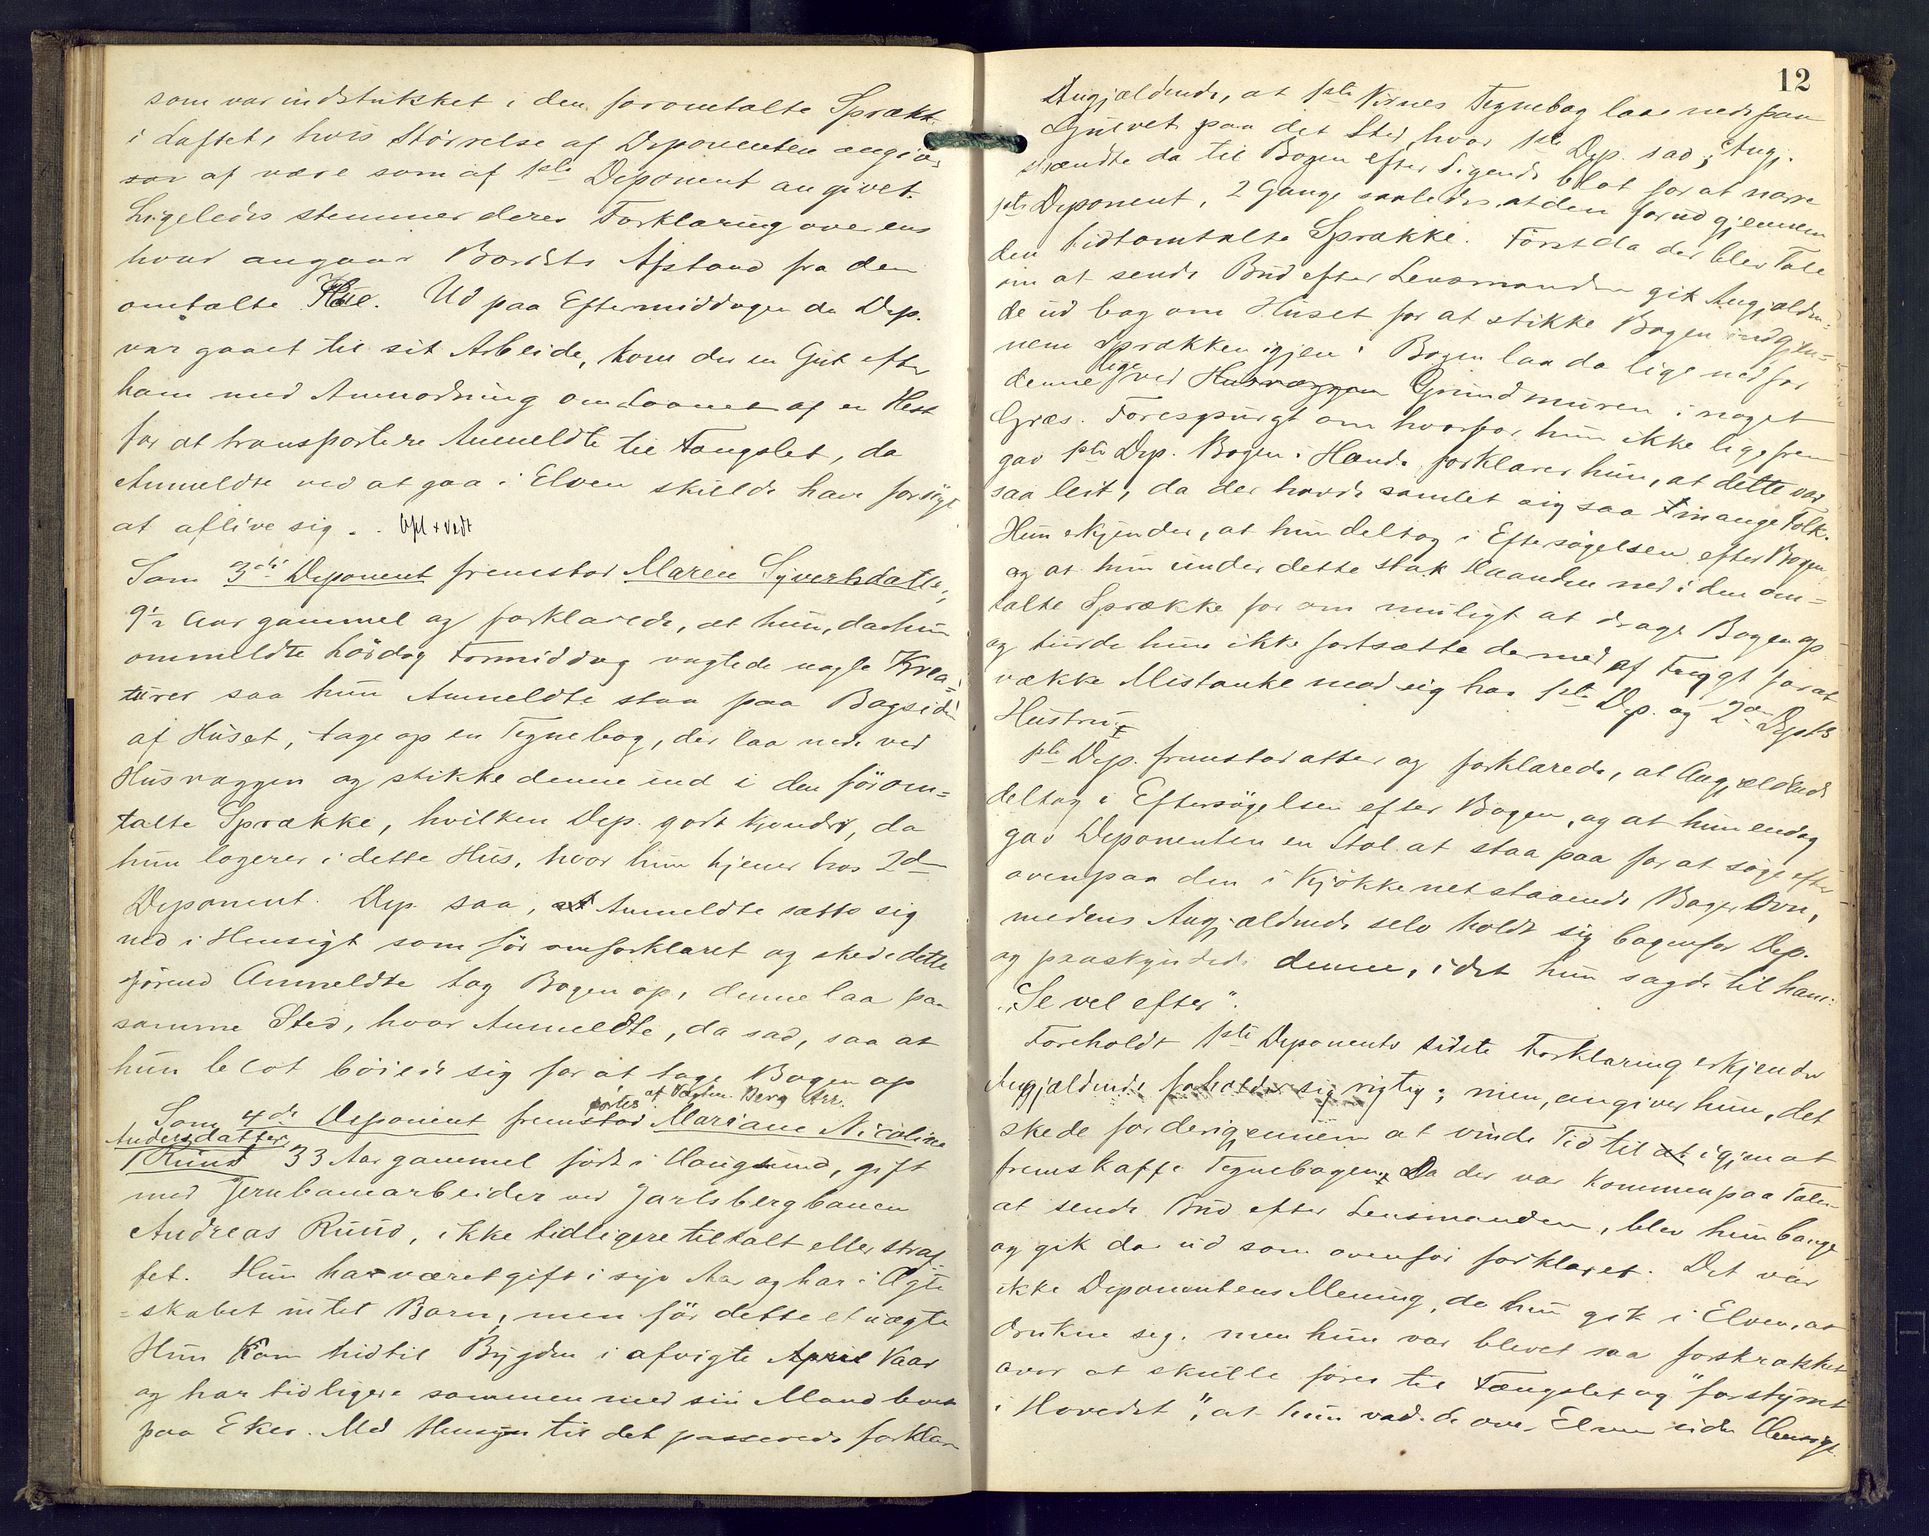 som var indstukket i den foromtalte Sprækk
i Loftet, hvis Størrelse af Deponenten angives
at være som af 1ste Deponent angivet.
Ligeledes stemmer deres Forklaring overens
hvad angaar Bordets Afstand fra den
omtalte Hul. Ud paa Eftermiddagen da Dep.
var gaaet til sit Arbeide, kom der en Gut efter
ham med Anmodning om Laanet af en Hest
for at transportere Anmeldte til Fængslet, da
Anmeldte ved at gaa i Elven skulde have forsøgt
at aflive sig. Opl + vedt
Som 3die Deponent fremstod Maren Syvertsdatter,
9½ Aar gammel og forklarede, at hun, da hun
ommeldte Lørdag Formiddag vogtede nogle Krea-
turer saa hun Anmeldte staa paa Bagsiden
af Huset, tage op en Tegnebog, der laa nede ved
Husvæggen og stikke denne ind i den førom-
talte Sprække, hvilken Dep. godt kjender, da
hun logerer i dette Hus, hvor hun tjener hos 2den
Deponent. Dep. saa, at Anmeldte satte sig
ned i Hensigt som før omforklaret og skede dette
førend Anmeldte tog Bogen op, denne laa paa
samme Sted, hvor Anmeldte, da sad, saa at
hun blot bøiede sig for at tage Bogen op
Som 4de Deponent fremstod Mariane Nicoline
Andersdatter
Ruud 33 Aar gammel født i Haugsund, gift
med Jernbanearbeider ved Jarlsbergbanen
Andreas Ruud, ikke tidligere tiltalt eller straf-
fet. Hun har været gift i syv Aar og har i Ægte-
skabet intet Barn, men før dette et uægte
Hun kom hid til Bygden i afvigte April Vaar
og har tidligere sammen med sin Mand boet
paa Eker. Med Hensyn til det passerede forklar
12
Angjældende, at 1ste Vidnes Tegnebog laae nede paa
Gulvet paa det Sted, hvor 1ste Dep. sad; Angj.
skændte da til Bogen efter Sigende blot for at narre
1ste Deponent, 2 Gange saaledes at den for ud gjennem
den tidtomtalte Sprække. Først da der blev Tale
om at sende Bud efter Lensmanden gik Angjælden-
de ud bag om Huset for at stikke Bogen indgjen-
nem Sprækken igjen. Bogen laa da lige nedfor
denne lige ved Husvæggen Grundmuren i noget
Græs. Forespurgt om hvorfor hun ikke ligefrem
gav 1ste Dep. Bogen i Hænde forklarer hun, at dette var
saa leit, da der havde samlet sig saa mange Folk.
Hun erkjender, at hun deltog i Eftersøgelsen efter Bogen
og at hun under dette stak Haanden ned i den om-
talte Sprække for om muligt at drage Bogen op
og turde hun ikke fortsætte dermed af Frygt for at
vække Mistanke mod sig hos 1ste Dep. og 2den Dep.ts
Hustru.
1ste Dep. fremstod atter og forklarede, at Angjældende
deltog i Eftersøgelsen efter Bogen, og at hun endog
gav Deponenten en Stol at staa paa for at søge efter
ovenpaa den i Kjøkkenet staaende Bager Ovn,
medens Angjældende selv holdt sig bagenfor Dep.
og paaskyndede denne, idet hun sagde til ham:
"Se vel efter".
Foreholdt 1ste Deponents sidste Forklaring erkjender
Angjældende forholder sig rigtig; men, angiver hun, det
skede for derigjennem at vinde Tid til at igjen at
fremskaffe Tegnebogen. Da der var kommen paa Tale
at sende Bud efter Lensmanden, blev hun bange
og gik da ud som ovenfor forklaret. Det var
ikke Deponentens Mening, da hun gik i Elven, at
drukne sig, men hun var blevet saa forskrækket
over at skulle føres til Fængslet og "forstyrret
i Hovedet", at hun vadede over Elven uden Hensigt